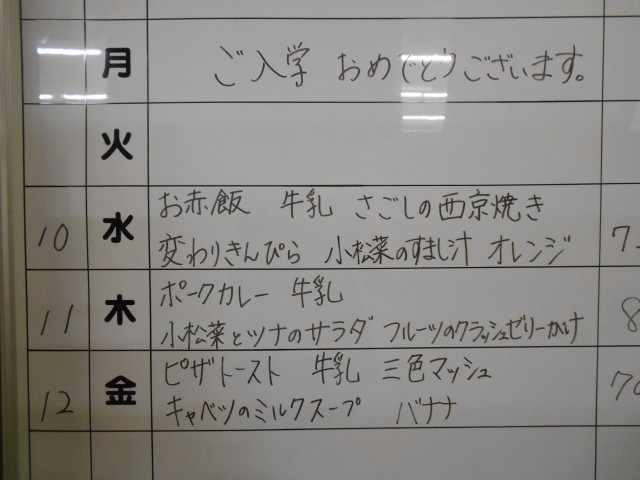 月 ご入学 おめでとうございます。
火
お赤飯 牛乳 さごしの西京焼き
10 水
変わりきんぴら 小松菜のすまし汁 オレンジ
ポークカレー 牛乳
11 木
小松菜とツナのサラダ フルーツのクラッシュゼリーかけ
ピザトースト 牛乳 三色マッシュ
12 金
キャベツのミルクスープ バナナ